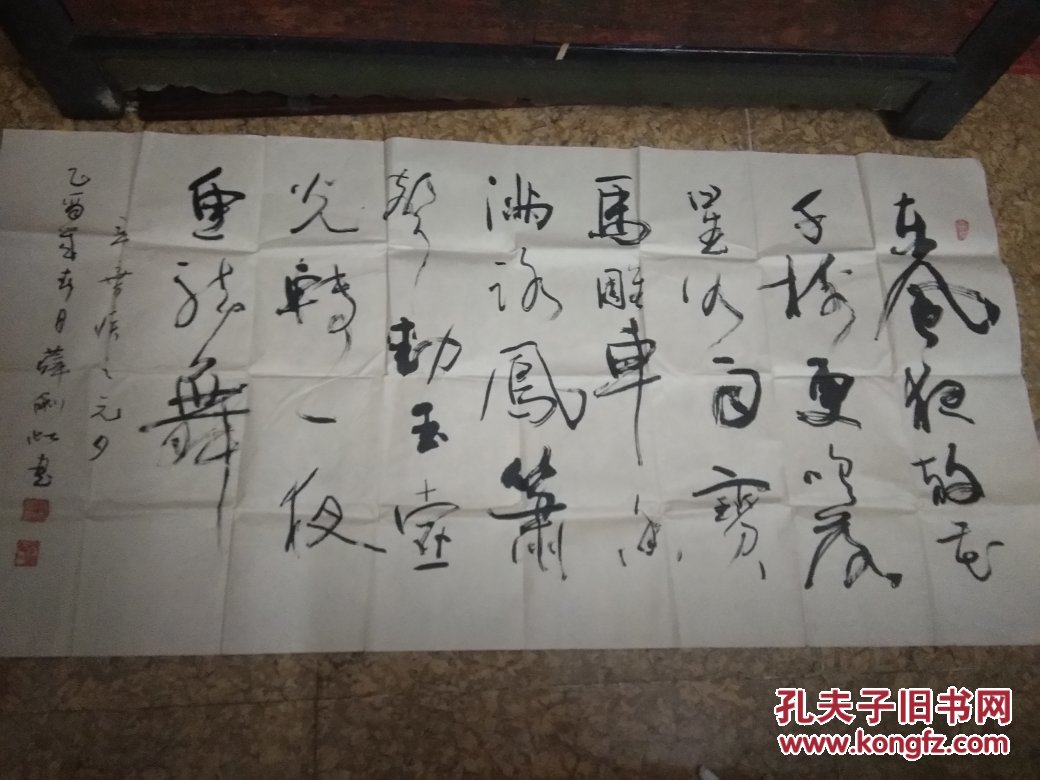 東風夜放花
千樹更吹落
星如雨寶
馬雕車香
滿路鳳簫
聲動玉壺
光轉一夜
魚龍舞
辛棄疾之元夕
乙酉年春日薛
書
孔夫子旧书网
www.kongfz.com